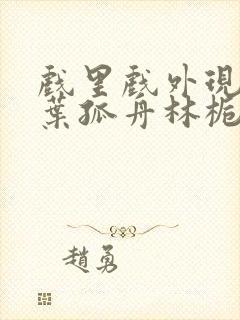 戲里戲外現
葉孤舟林栀
趙勇